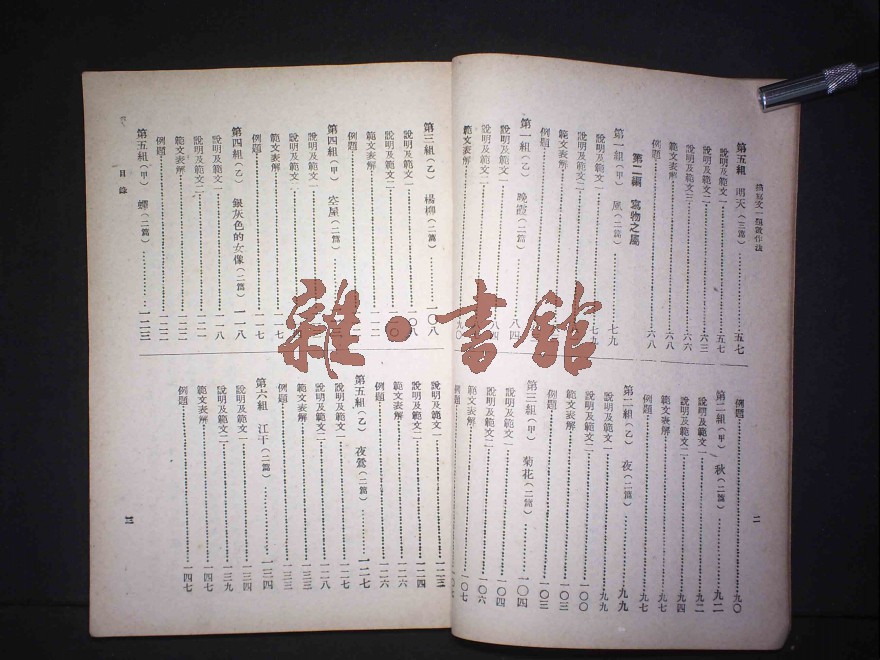 描寫文一題數作法
第五組 明天(三篇)…………五七
說明及範文一…………五七
說明及範文二…………六三
說明及範文三…………六六
範文表解…………六八
例題…………六八
第二編 寫物之屬
第一組(甲) 風(二篇)…………七九
說明及範文一…………七九
說明及範文二
範文表解
例題
第一組(乙) 晚霞(二篇)…………八四
說明及範文一…………八四
說明及範文二
範文表解…………九〇
例題…………九〇
第二組(甲) 秋(二篇)…………九二
說明及範文一…………九二
說明及範文二…………九四
範文表解…………九七
例題…………九七
第二組(乙) 夜(二篇)…………九九
說明及範文一…………九九
說明及範文二…………一〇〇
範文表解…………一〇三
例題…………一〇三
第三組(甲) 菊花(二篇)…………一〇四
說明及範文一…………一〇四
說明及範文二…………一〇六
範文表解…………一〇七
例題
二
第三組(乙) 楊柳(二篇)…………一〇八
說明及範文一…………一〇八
說明及範文二
範文表解…………一一二
例題
第四組(甲) 空屋(二篇)
說明及範文一
說明及範文二
範文表解…………一一七
例題…………一一七
第四組(乙) 銀灰色的女像(二篇)一一八
說明及範文一…………一一八
說明及範文二…………一二一
範文表解…………一二二
例題…………一二二
第五組(甲) 蟬(二篇)…………一二三
說明及範文一…………一二三
說明及範文二…………一二四
範文表解…………一二六
例題…………一二六
第五組(乙) 夜鶯(二篇)…………一二七
說明及範文一…………一二七
說明及範文二…………一二八
範文表解…………一三三
例題…………一三三
第六組 江干(二篇)…………一三四
說明及範文一…………一三四
說明及範文二…………一三九
範文表解…………一四七
例題…………一四七
目錄
三
雜·書館